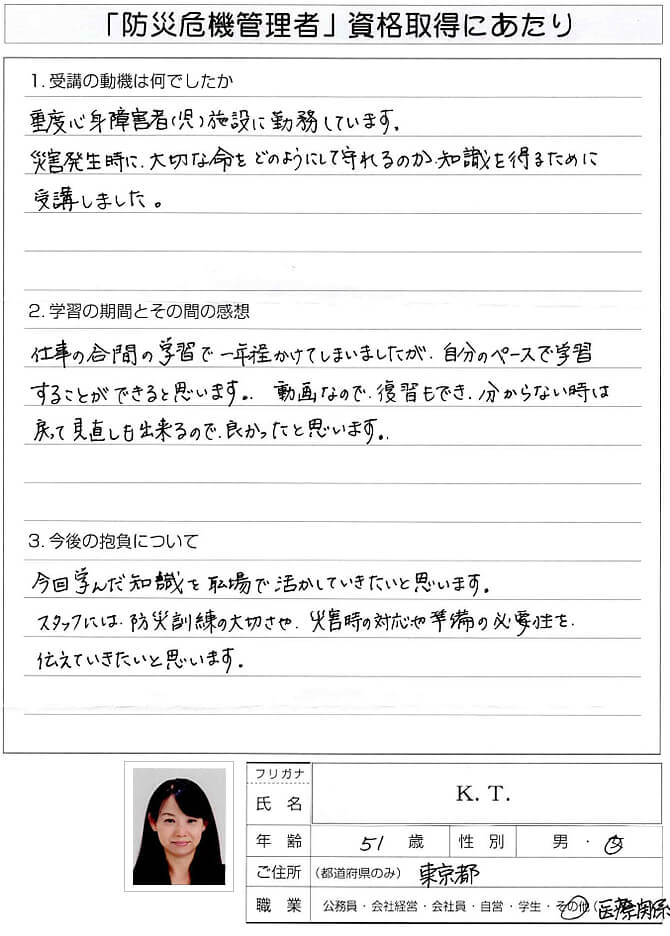 「防災危機管理者」資格取得にあたり
1. 受講の動機は何でしたか
重度心身障害者(児)施設に勤務しています。
災害発生時に、大切な命をどのようにして守れるのか、知識を得るために
受講しました。
2. 学習の期間とその間の感想
仕事の合間の学習で一年程かけてしまいましたが、自分のペースで学習
することができると思います。動画なので、復習もでき、分からない時は
戻って見直しも出来るので、良かったと思います。
3. 今後の抱負について
今回学んだ知識を職場で活かしていきたいと思います。
スタッフには、防災訓練の大切さや、災害時の対応や準備の必要性を、
伝えていきたいと思います。
フリガナ
氏 名 K. T.
年 齢 51 歳 性 別 男 ・ 女
ご住所 (都道府県のみ) 東京都
職 業 公務員・会社経営・会社員・自営・学生・その他( 医療関係